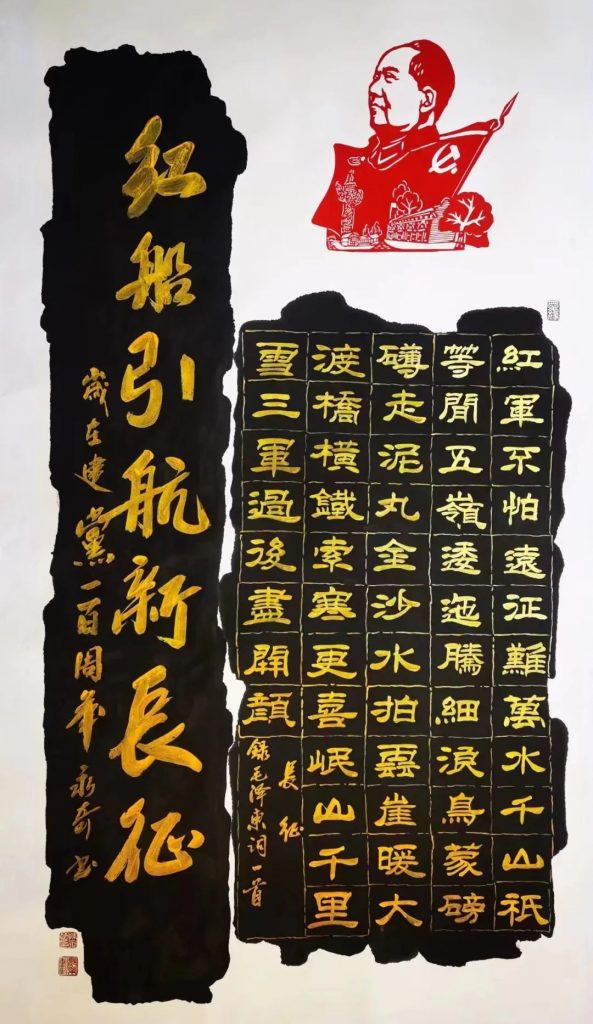 紅軍不怕遠征難萬水千山祇
等閒五嶺逶迤騰細浪烏蒙磅
礴走泥丸金沙水拍雲崖暖大
渡橋橫鐵索寒更喜岷山千里
雪三軍過後盡開顏
長征
錄毛泽東词一首
红船引航新長征
歲在建黨一百周年永奇书